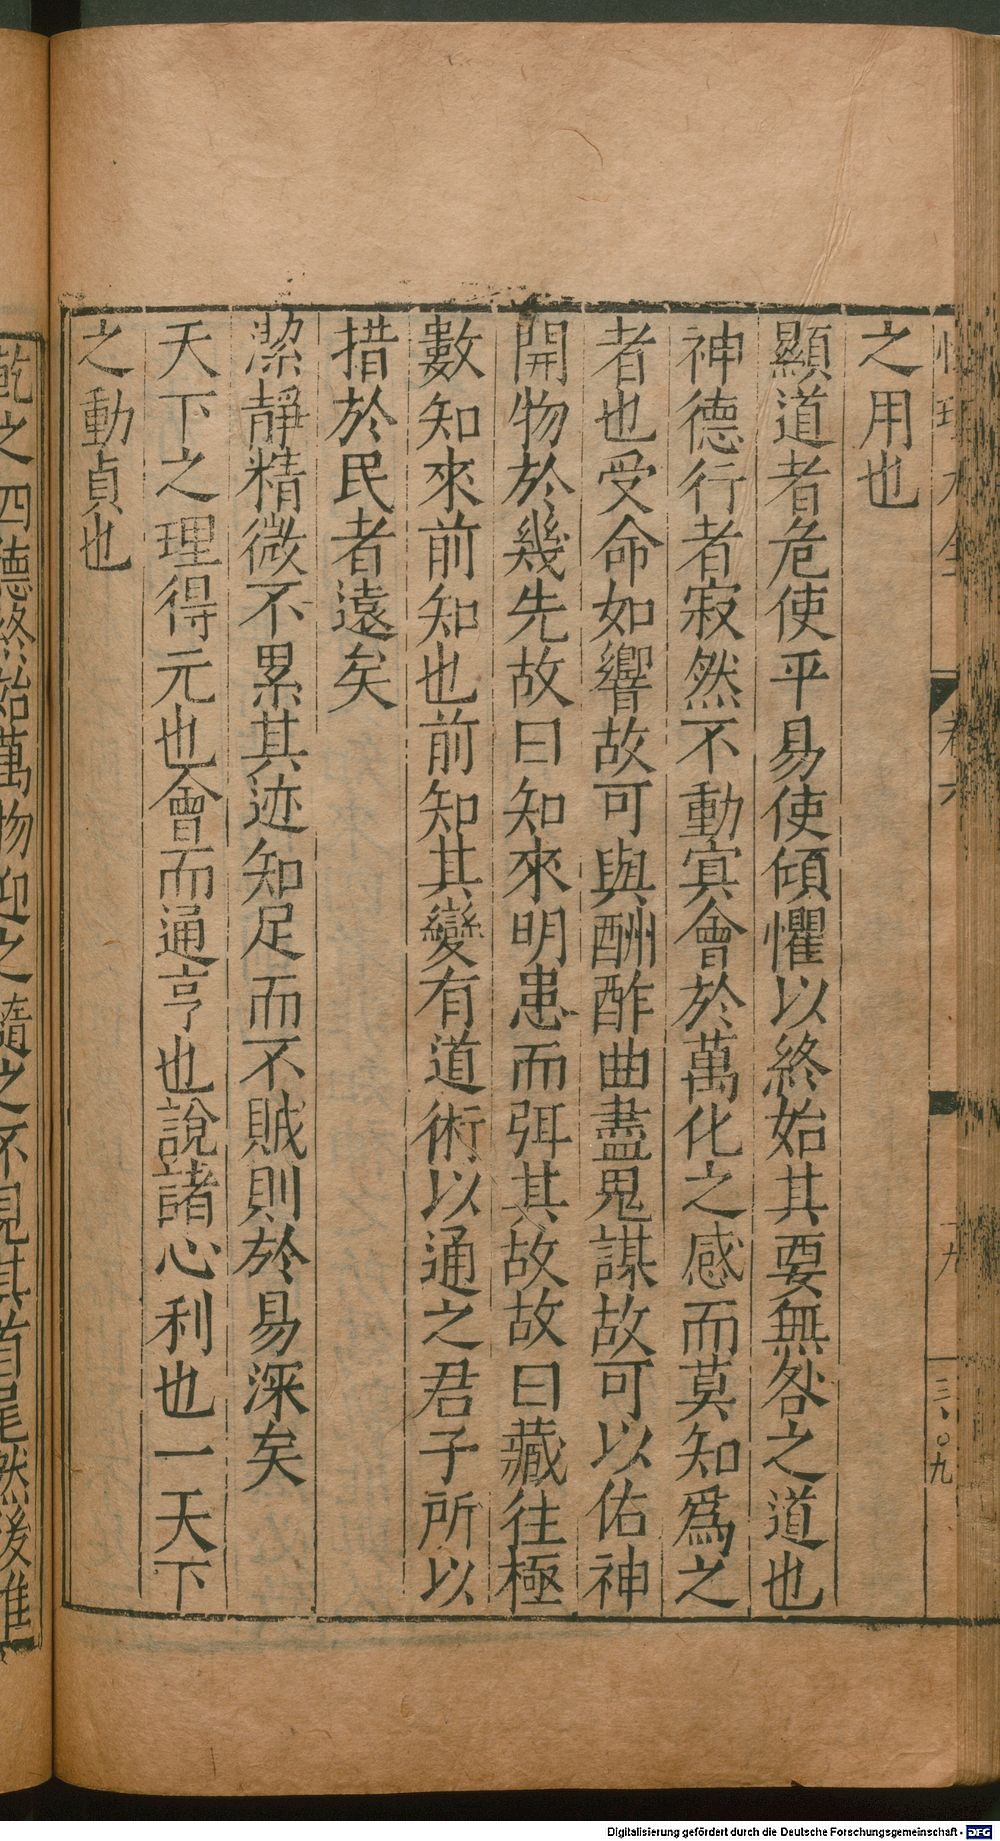 之用也
顯道者危使平易使傾懼以終始其要無咎之道也
神德行者寂然不動寘會於萬化之感而莫知爲之
者也受命如響故可與酬酢曲盡鬼謀故可以佑神
開物於幾先故曰知來明患而弭其故故曰藏往極
數知來前知也前知其變有道術以通之君子所以
措於民者遠矣
潔靜精微不累其迹知足而不賊則於易深矣
天下之理得元也會而通亨也說諸心利也一天下
之動貞也
乾之四德終始萬物迎之隨之不見其首尾然後推
卷六
十九
三、〇九
Digitalisierung gefördert durch die Deutsche Forschungsgemeinschaft - DFG